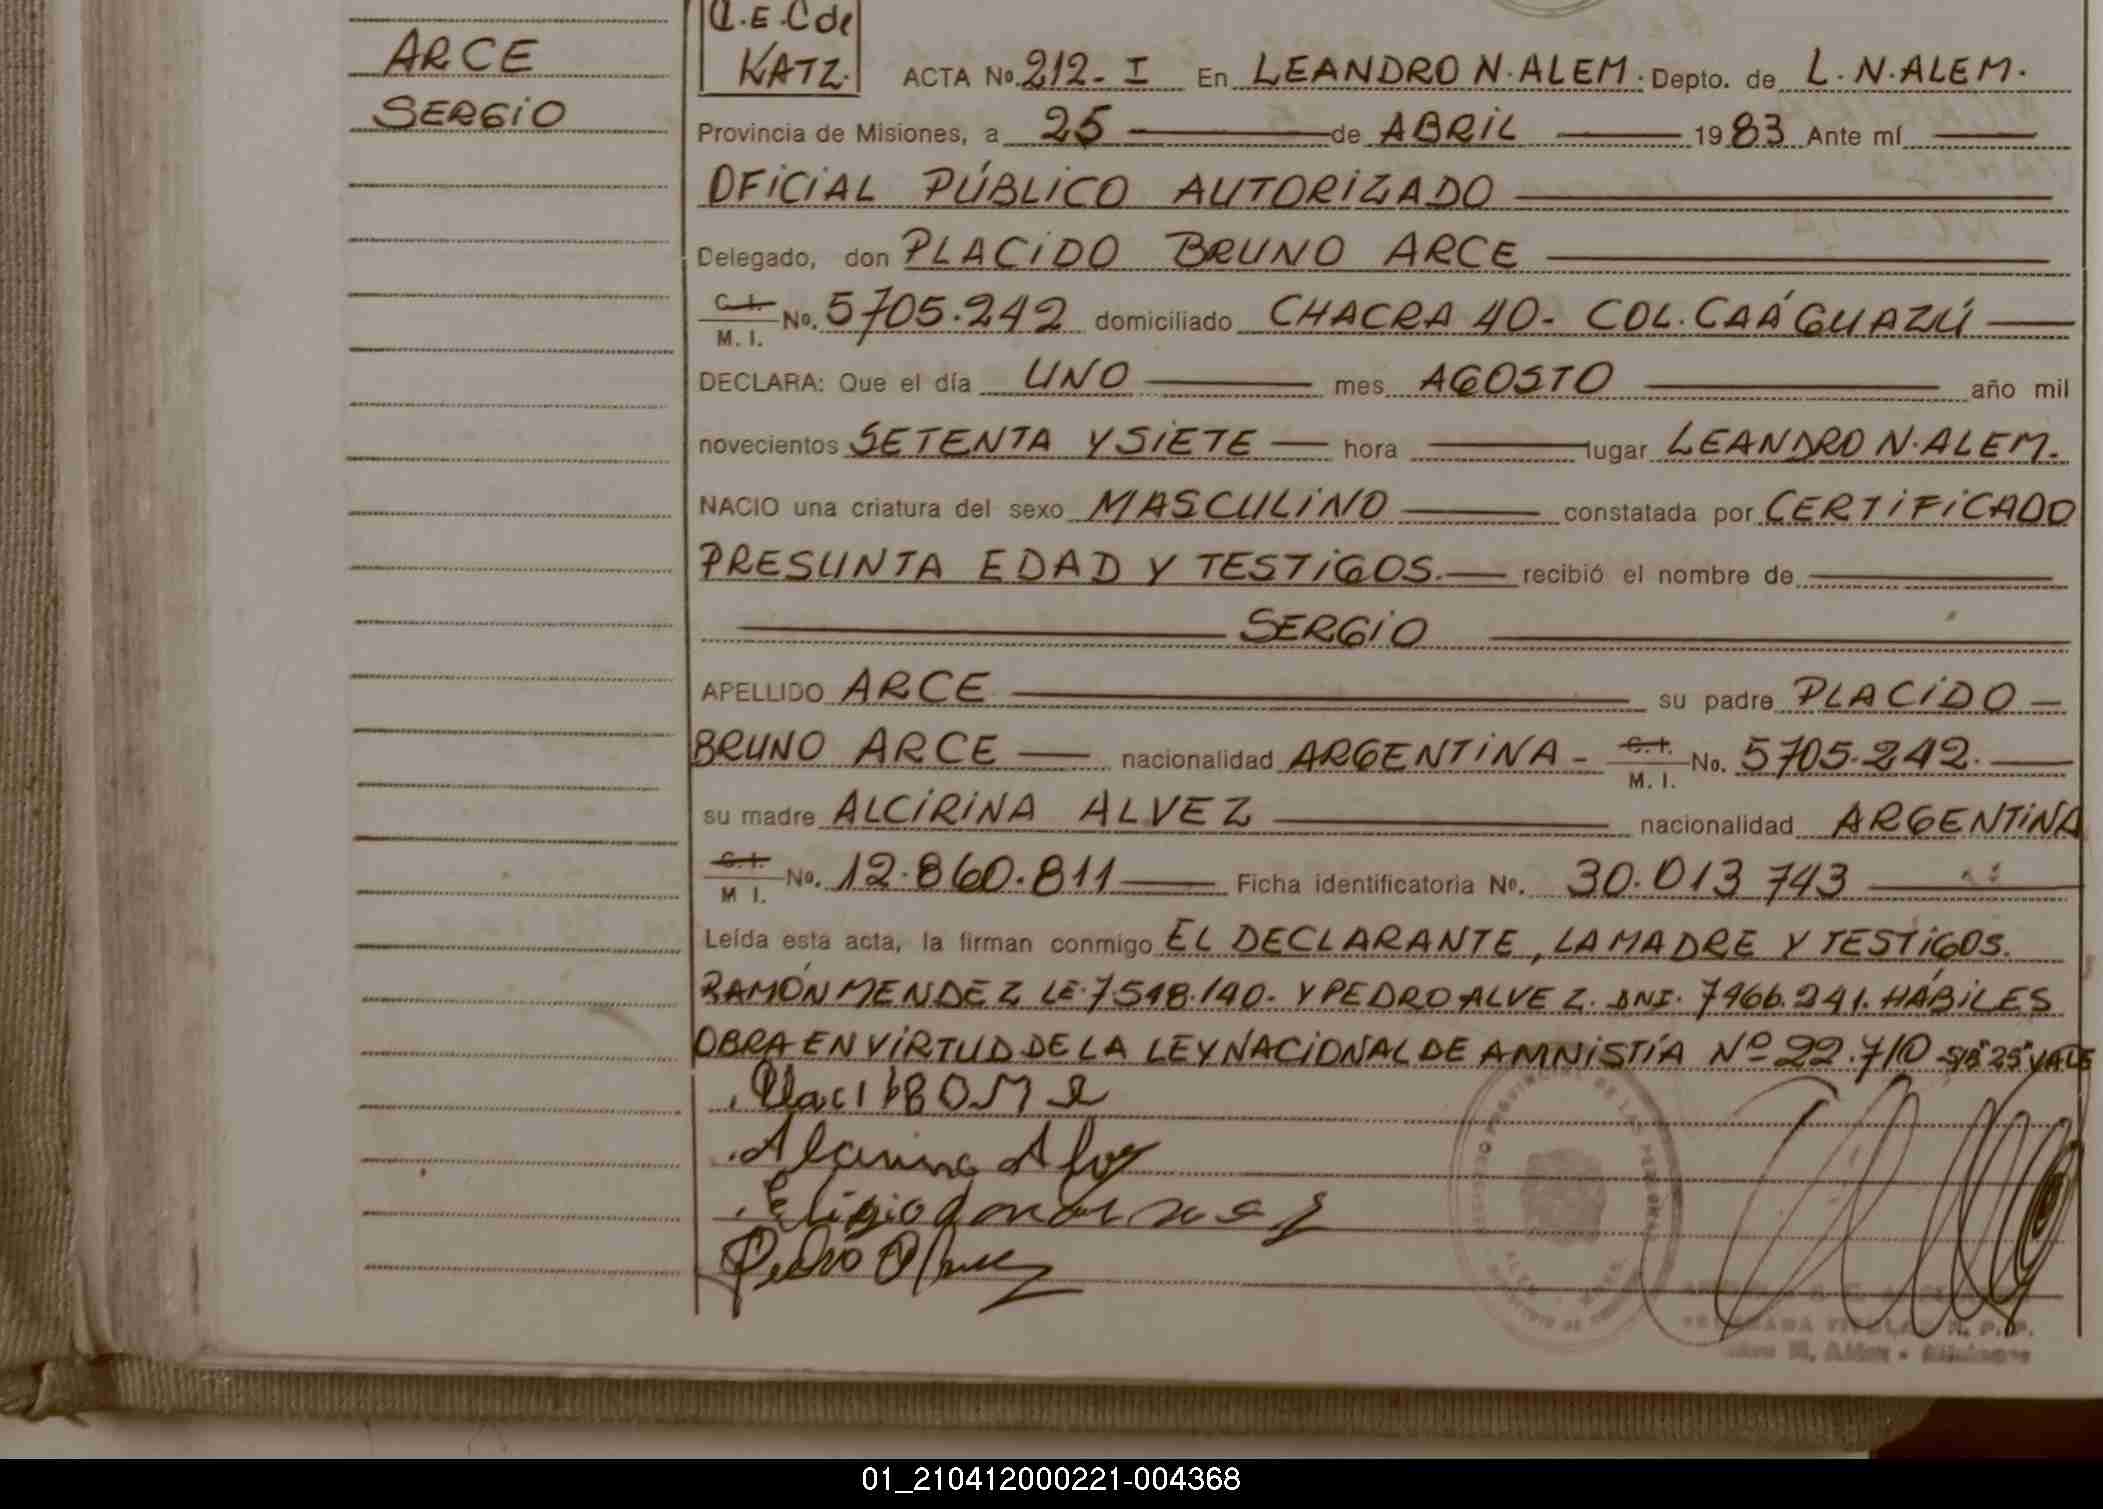 ARCE
SERGIO
C.E.C de
KATZ.
ACTA No. 212-I En LEANDRO N. ALEM. Depto. de L. N. ALEM.
Provincia de Misiones, a 25 de ABRIL 1983 Ante mí
OFICIAL PÚBLICO AUTORIZADO
Delegado, don PLACIDO BRUNO ARCE
C.I.
M. I. No. 5705.242 domiciliado CHACRA 40- COL. CAÁGUAZÚ
DECLARA: Que el día UNO mes AGOSTO año mil
novecientos SETENTA Y SIETE hora lugar LEANDRO N. ALEM.
NACIO una criatura del sexo MASCULINO constatada por CERTIFICADO
PRESUNTA EDAD Y TESTIGOS. recibió el nombre de
SERGIO
APELLIDO ARCE su padre PLACIDO
BRUNO ARCE nacionalidad ARGENTINA - C.I.
M. I. No. 5705.242.
su madre ALCIRINA ALVEZ nacionalidad ARGENTINA
C.I.
M I. No. 12.860.811 Ficha identificatoria No. 30.013 743
Leída esta acta, la firman conmigo EL DECLARANTE, LA MADRE Y TESTIGOS.
RAMÓN MENDEZ LE. 7518.140. Y PEDRO ALVEZ. DNI. 7466.241. HÁBILES
OBRA EN VIRTUD DE LA LEY NACIONAL DE AMNISTÍA Nº 22.710 VALE
Pedro Alvez
01_210412000221-004368